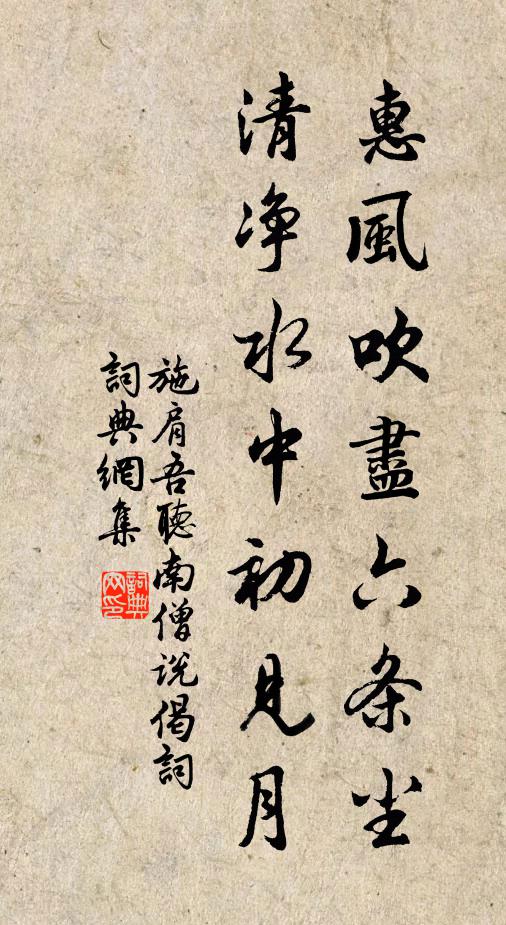 惠風吹盡六条尘
清净水中初见月
施肩吾聽南僧说偈詞
詞典網集
詞典网印